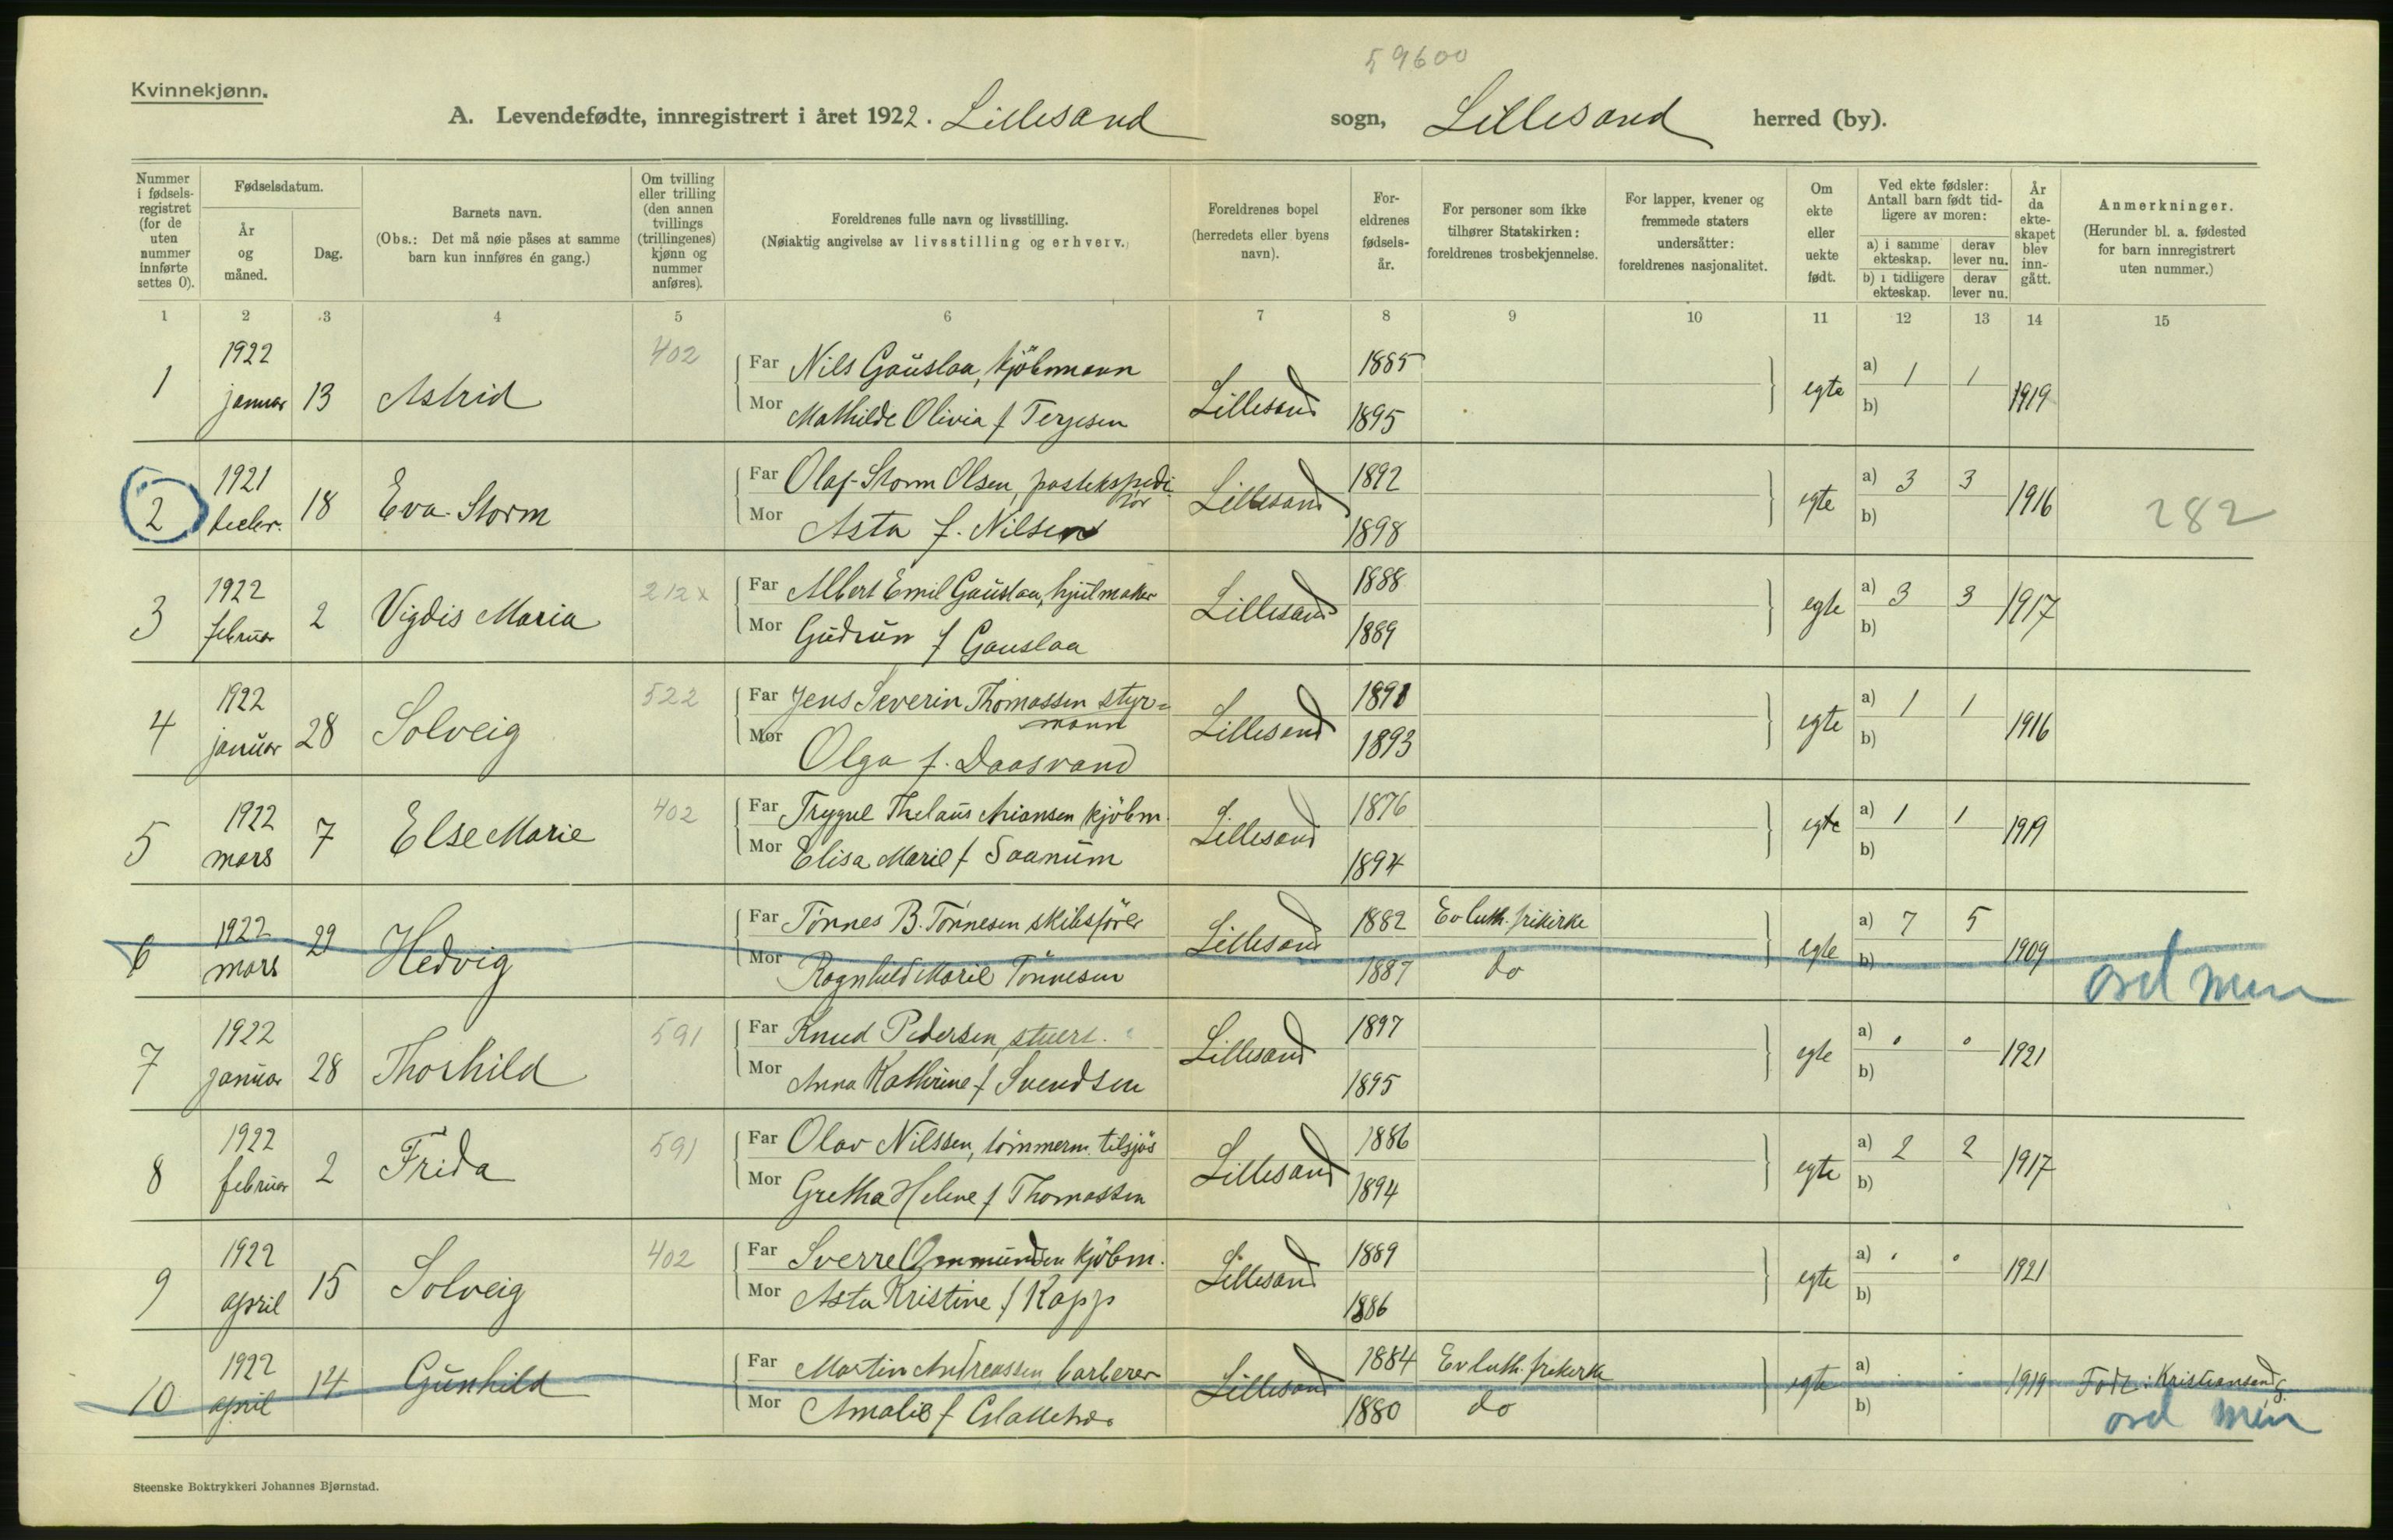 59600
Kvinnekjønn.
A. Levendefødte, innregistrert i året 1922. Lillesand sogn, Lillesand herred (by).
Nummer i fødsels-registret (for de uten nummer innførte settes 0).
Fødselsdatum.
År og måned.
Dag.
Barnets navn.
(Obs.: Det må nøie påses at samme barn kun innføres én gang.)
Om tvilling eller trilling (den annen tvillings (trillingenes) kjønn og nummer anføres).
Foreldrenes fulle navn og livsstilling.
(Nøiaktig angivelse av livsstilling og erhverv.)
Foreldrenes bopel (herredets eller byens navn).
For-eldrenes fødsels-år.
For personer som ikke tilhører Statskirken: foreldrenes trosbekjennelse.
For lapper, kvener og fremmede staters undersåtter: foreldrenes nasjonalitet.
Om ekte eller uekte født.
Ved ekte fødsler: Antall barn født tid-ligere av moren:
a) i samme ekteskap.
derav lever nu.
b) i tidligere ekteskap.
derav lever nu.
År da ekte-skapet blev inn-gått.
Anmerkninger.
(Herunder bl. a. fødested for barn innregistrert uten nummer.)
1 2 3 4 5 6 7 8 9 10 11 12 13 14 15
1 1922 januar 13 Astrid 402 Far Nils Gauslaa, kjöbmann Lillesand 1885 egte a) 1 1 1919
Mor Mathilde Olivia f Terjesen 1895 b)
2 1921 decbr. 18 Eva Storm Far Olaf Storm Olsen, postekspedi-tör Lillesand 1892 egte a) 3 3 1916 282
Mor Asta f. Nilsen 1898 b)
3 1922 februar 2 Vigdis Maria 212 x Far Albert Emil Gauslaa, hjulmaker Lillesand 1888 egte a) 3 3 1917
Mor Gudrun f Gauslaa 1889 b)
4 1922 januar 28 Solveig 522 Far Jens Severin Thomassen styr=mann Lillesand 1891 egte a) 1 1 1916
Mor Olga f. Daasvand 1893 b)
5 1922 mars 7 Else Marie 402 Far Trygve Thelaus Arianson kjöbm. Lillesand 1876 egte a) 1 1 1919
Mor Elisa Marie f Saanum 1894 b)
6 1922 mars 29 Hedvig Far Tönnes B. Tönnesen skibsförer Lillesand 1882 Ev luth. frikirke egte a) 7 5 1909
Mor Ragnhild Marie Tönnesen 1887 do b) ord men
7 1922 januar 28 Thorhild 591 Far Knud Pedersen, stuert. Lillesand 1897 egte a) 0 0 1921
Mor Anna Kathrine f Svendsen 1895 b)
8 1922 februar 2 Frida 591 Far Olav Nilssen, tömmerm. tilsjös Lillesand 1886 egte a) 2 2 1917
Mor Gretha Helene f Thomassen 1894 b)
9 1922 april 15 Solveig 402 Far Sverre Ommundsen kjöbm. Lillesand 1889 egte a) 0 0 1921
Mor Asta Kristine f Kapp 1886 b)
10 1922 april 14 Gunhild Far Martin Andreassen barberer Lillesand 1884 Ev luth. frikirke egte a) 1919 Födt: Kristiansand S.
Mor Amalie f 1880 do b) ord men
Steenske Boktrykkeri Johannes Bjørnstad.